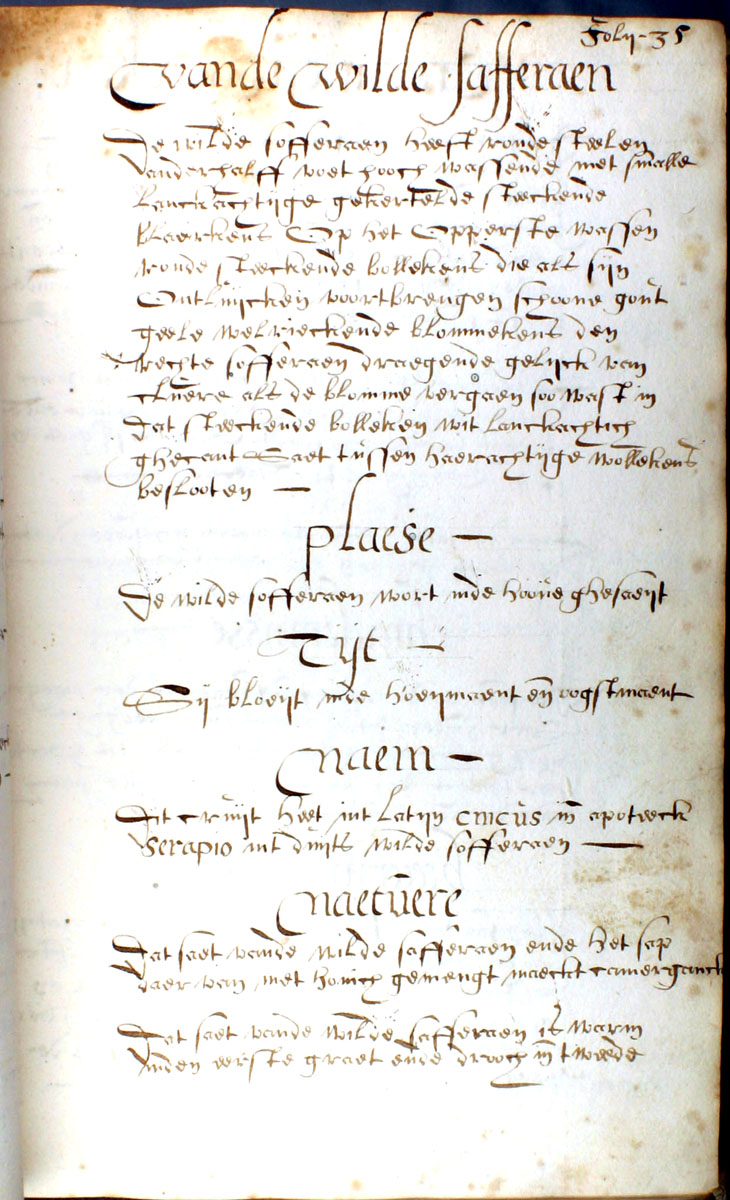 Folij-35
vande wilde safferaen
De wilde sofferaen heeft ronde steelen
vanderhalff voet hooch wassende met smalle
lanckachtijge gekertelde steeckende
blaerkens Op het Opperste wassen
ronde steeckende bollekens die als sijn
Ontluijcken voortbrengen schoone gout
geele welrieckende blommekens den
rechte sofferaen draegende gelijck van
cluere als de blomme vergaen soo wast in
dat steeckende bolleken wit lanckachtich
ghecant Saet tussen haerachtijge wollekens
beslooten —
plaese —
De wilde sofferaen wort inde hoove ghesaeijt
Tijt —
Sij bloeijt inde hoeijmaent en oogstmaent
naem —
Dit cruijt heet int latijn cnicus in apoteeck
Serapio int duijts wilde sofferaen —
naetuere
Dat saet vande wilde safferaen ende het sap
daer van met honich gemengt maeckt camerganck
Dat saet vande wilde safferaen is warm
inden eerste graet ende drooch in tweede